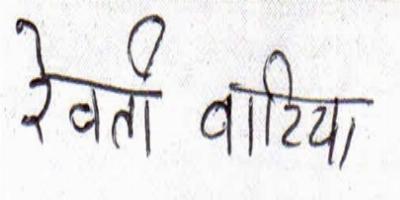 रेवती वाटिया